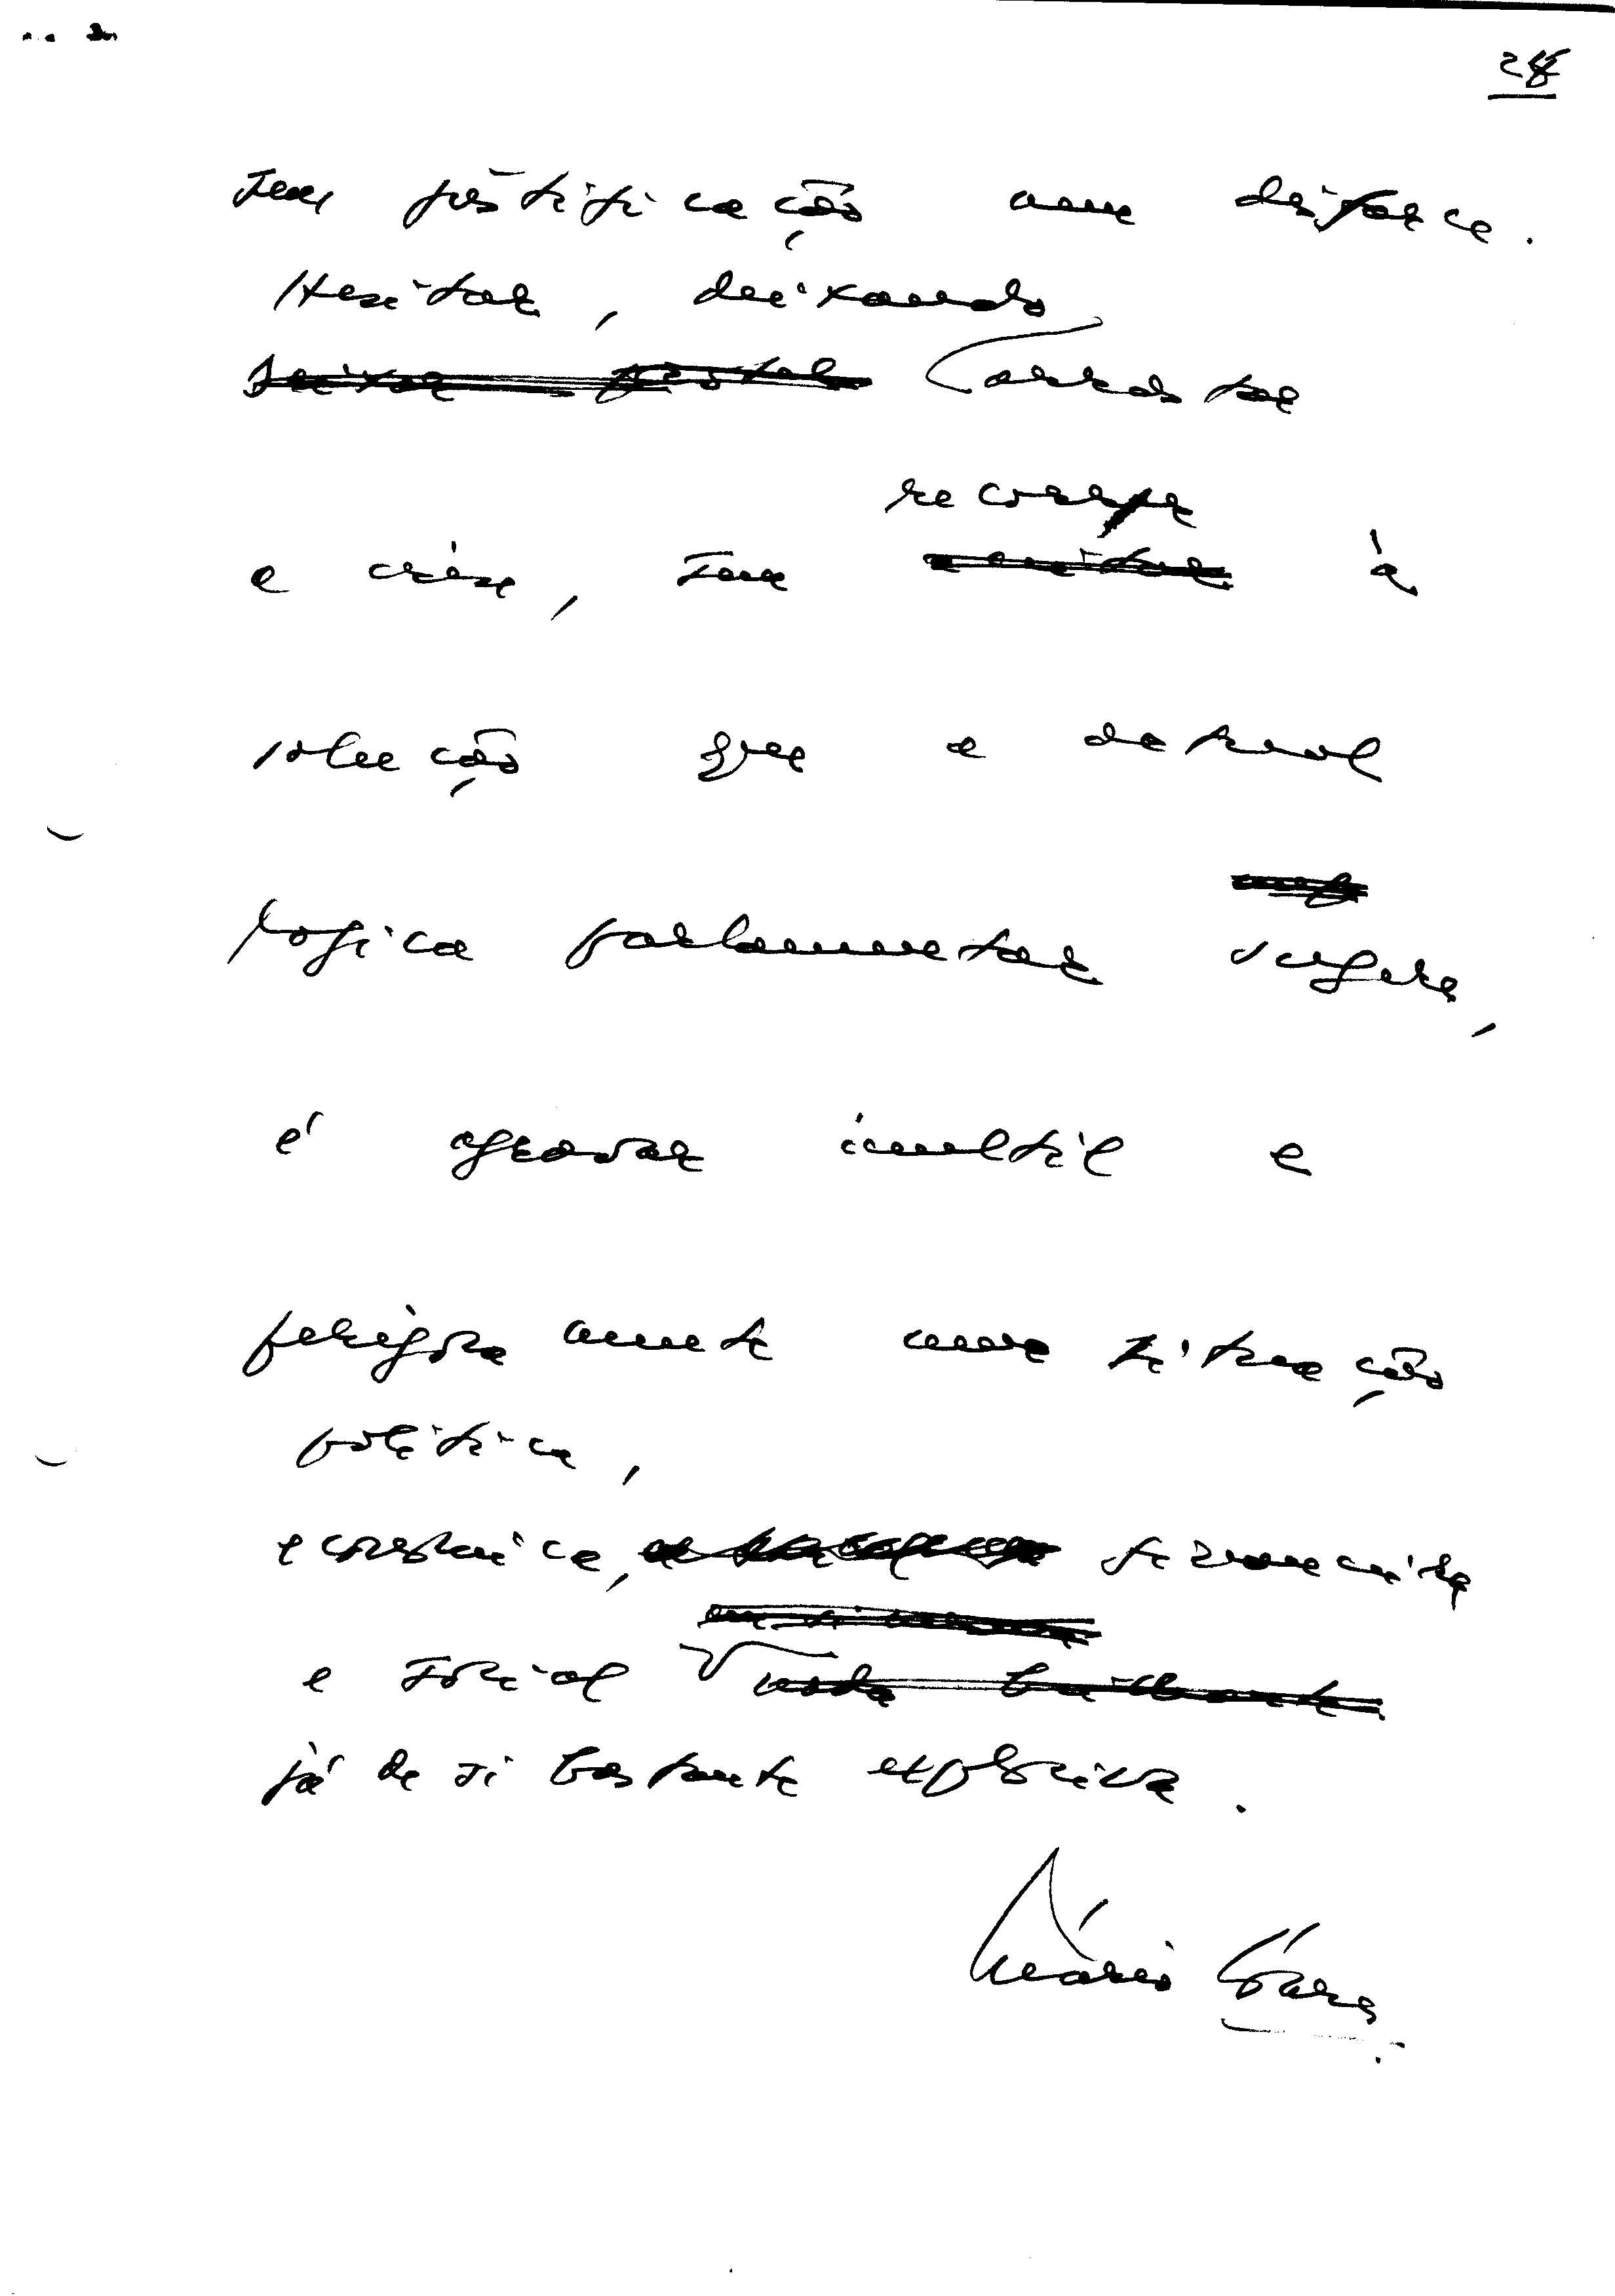 28
sem justificação nem disfarce.
Hesitar, deixando
arrastar
recorrer
a crise, sem à
solução que a actual
lógica parlamentar sugere,
é agravar inutil e
perigosamente uma situação
política,
económica, financeira
e social
já de si bastante explosiva.
Mário Soares